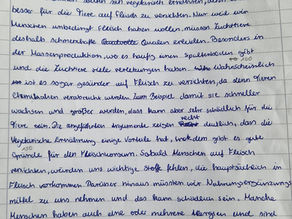 besser für die Tiere auf Fleisch zu verzichten. Nur weil wir
Menschen unbedingt Fleisch haben wollen, müssen Zuchttiere
deshalb schmerzhafte Qualen erleiden. Besonders in
der Massenproduktion, wo es häufig einen gibt
und die Zuchttiere viele Verletzungen haben.
ist es sogar gesünder auf Fleisch zu verzichten, da den Tieren
Chemikalien verabreicht werden zum Beispiel damit sie schneller
wachsen und größer werden, das kann aber sehr schädlich für die
Tiere sein. Die angeführten Argumente zeigen recht deutlich, dass die
Vegetarische Ernährung einige Vorteile hat, trotzdem gibt es gute
Gründe für den Fleischkonsum. Sobald Menschen auf Fleisch
verzichten, würden uns wichtige Stoffe fehlen, die hauptsächlich in
Fleisch vorkommen. Darüber hinaus müssen wir Nahrungsergänzungs
mittel zu uns nehmen und das kann schädlich sein. Manche
Menschen haben auch eine oder mehrere Allergien und sind